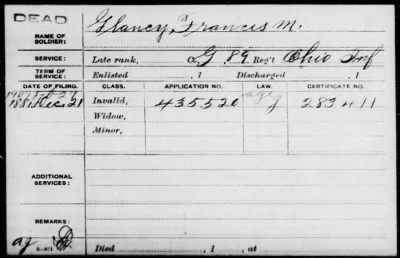 DEAD
NAME OF SOLDIER: Glancy, Francis M.
SERVICE: Late rank, Co. G 89 Reg't Ohio Inf
TERM OF SERVICE: Enlisted , 1 Discharged , 1
DATE OF FILING. CLASS. APPLICATION NO. LAW. CERTIFICATE NO.
1881 Dec. 21 Invalid, 435520 283411
Widow,
Minor,
ADDITIONAL SERVICES:
REMARKS:
Died , 1 , at